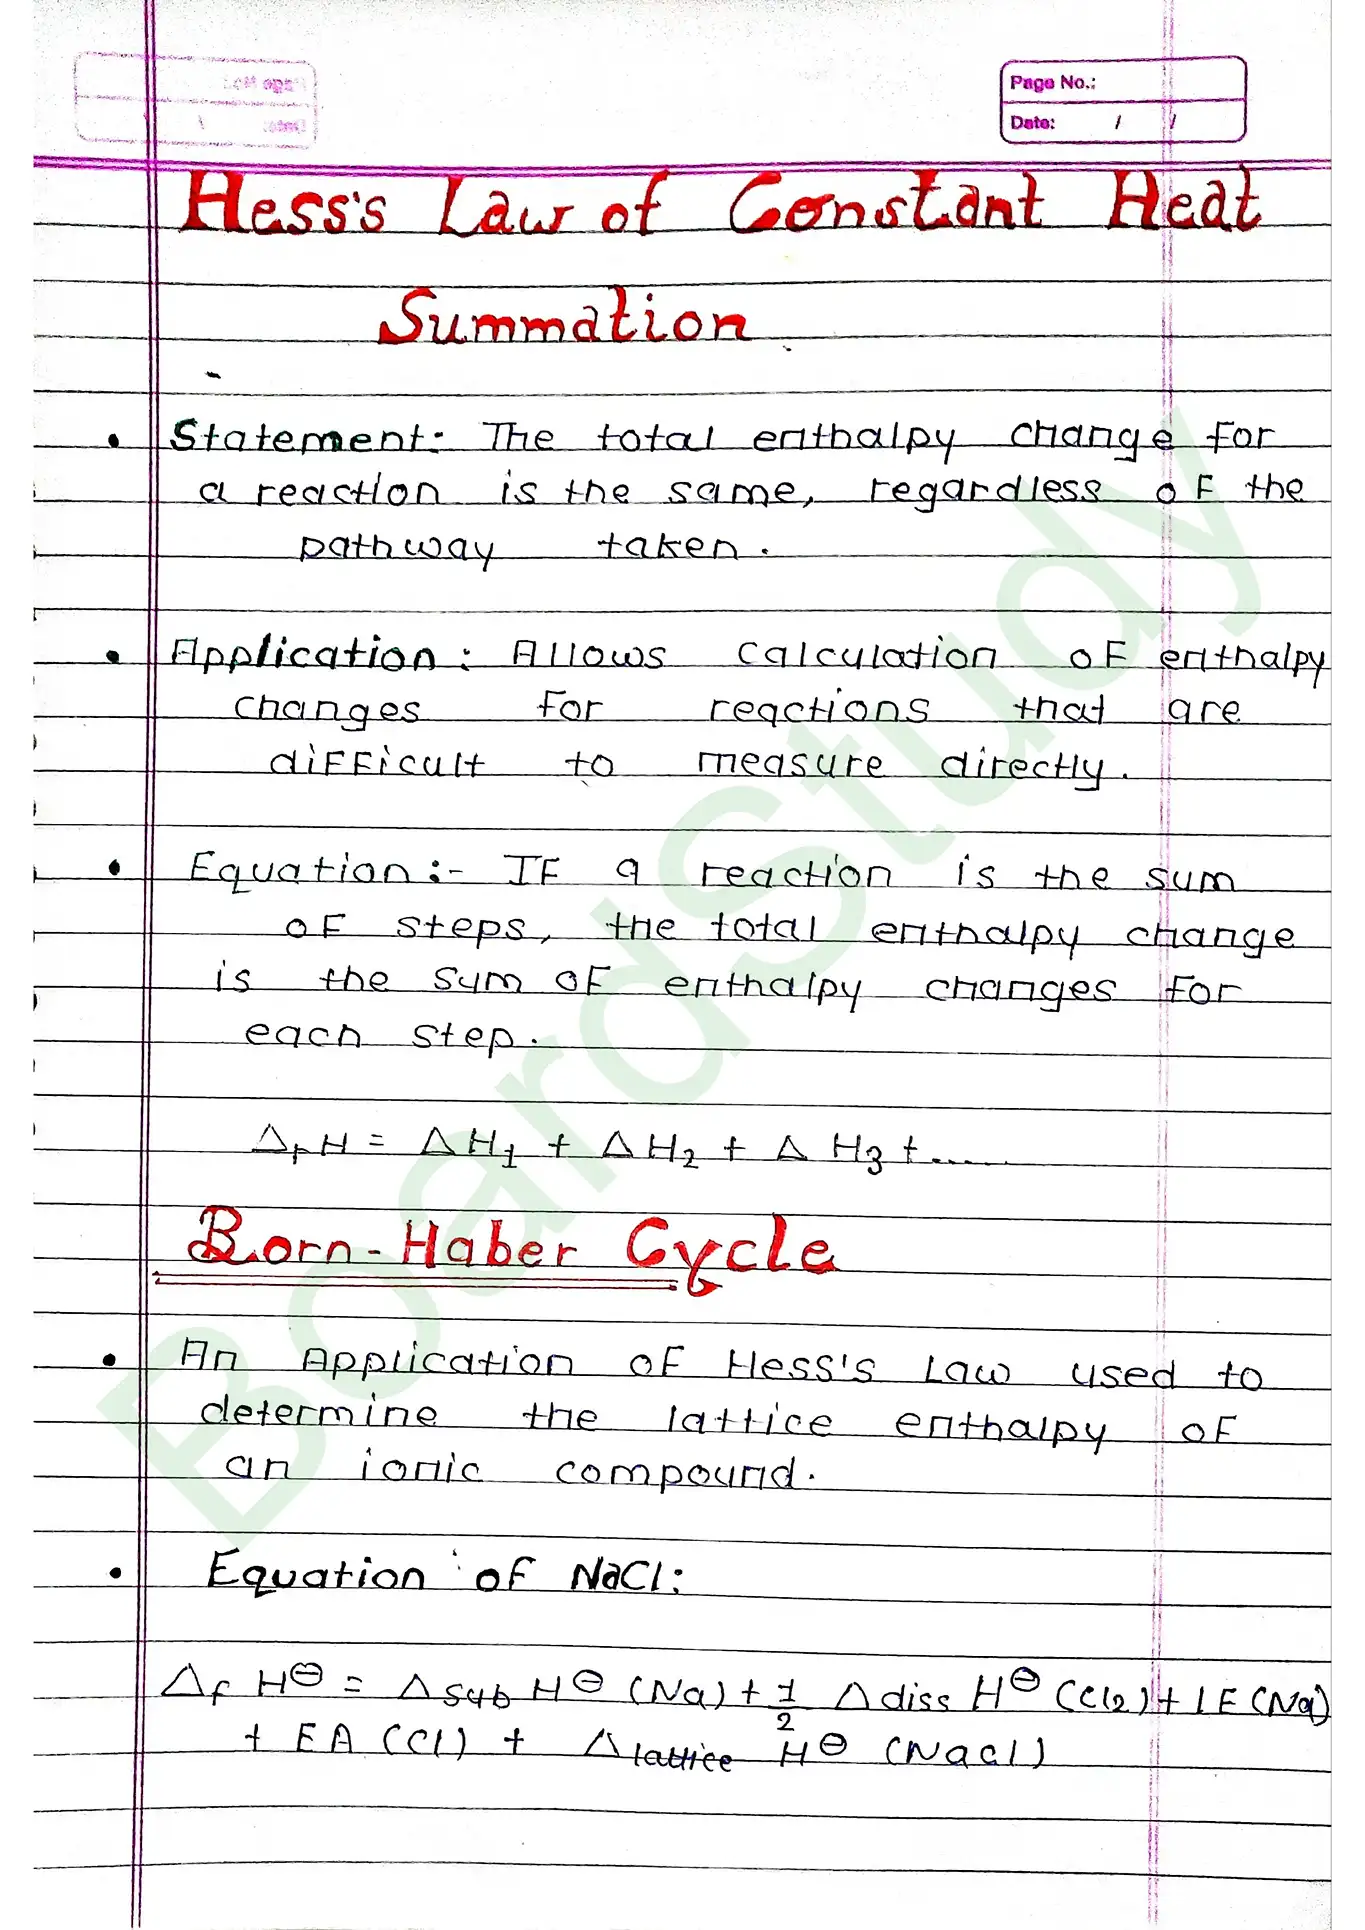 Page No.:
Date: / /
Hess's Law of Constant Heat
Summation
• Statement: The total enthalpy change for
a reaction is the same, regardless of the
pathway taken.
• Application: Allows calculation of enthalpy
changes for reactions that are
difficult to measure directly.
• Equation:- If a reaction is the sum
of steps, the total enthalpy change
is the sum of enthalpy changes for
each step.
ΔrH = ΔH1 + ΔH2 + ΔH3 + ......
Born-Haber Cycle
• An Application of Hess's Law used to
determine the lattice enthalpy of
an ionic compound.
• Equation of NaCl:
Δf H⊖ = Δsub H⊖ (Na) + 1/2 Δdiss H⊖ (Cl2) + IE (Na)
+ EA (Cl) + Δlattice H⊖ (NaCl)
BoardStudy